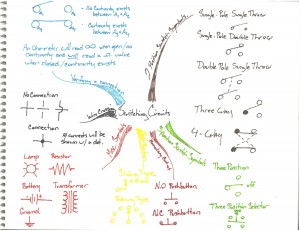 No Continuity exists
between A₁ & A₂
Continuity exists
between A₁ & A₂
An Ohmmeter will read ∞ when open/no
Continuity and will read a Ω value
when closed/continuity exists
Verifying a connection
No Connection
Connection
All connects will be
shown w/ a dot.
Wire Connections
Switching Circuits
2 Position Switch Symbols
Single-Pole Single Throw
Single-Pole Double Throw
Double Pole Single Throw
Three Way
4-Way
3 Position Switch Symbols
Three Position
Three Position Selector
Misc Symbols
Lamp
Resistor
Battery
Transformer
Ground
N.O Pushbutton
N.C Pushbutton